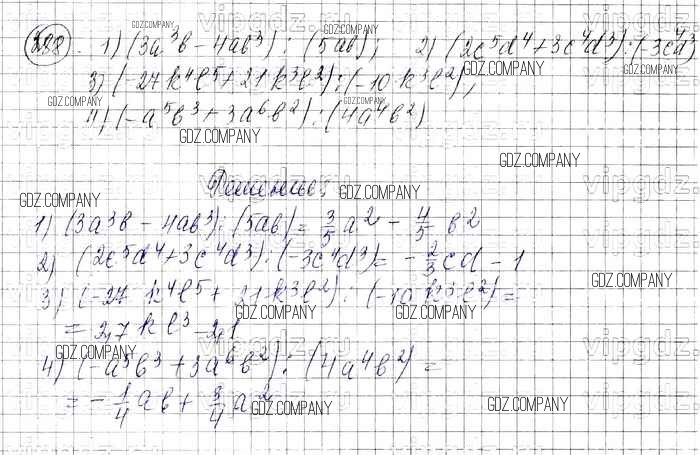 388. 1) (3a³b - 4ab³) : (5ab); 2) (2c⁵d⁴ + 3c⁴d³) : (-3c⁴d³)
3) (-27k⁴l⁵ + 21k³l²) : (-10k³l²);
4) (-a⁵b³ + 3a⁶b²) : (4a⁴b²)
Решение:
1) (3a³b - 4ab³) : (5ab) = 3/5 a² - 4/5 b²
2) (2c⁵d⁴ + 3c⁴d³) : (-3c⁴d³) = - 2/3 cd - 1
3) (-27k⁴l⁵ + 21k³l²) : (-10k³l²) =
= 2,7kl³ - 2,1
4) (-a⁵b³ + 3a⁶b²) : (4a⁴b²) =
= - 1/4 ab + 3/4 a²
GDZ.COMPANY
vipgdz.ru